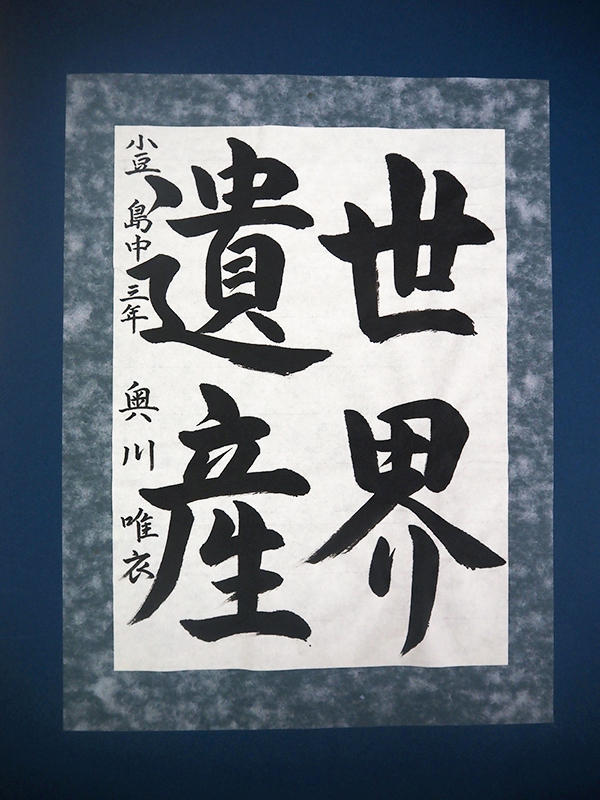 世界
遺産
小豆島中三年 奥川唯衣